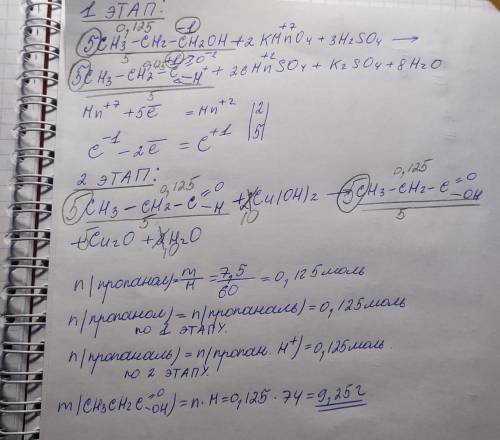 1 ЭТАП:
0,125 -1 +7
5CH3-CH2-CH2OH+2KMnO4+3H2SO4 →
5
+1 O-2 +2
5CH3-CH2-C-H + 2MnSO4 + K2SO4 + 8H2O
5
Mn+7 +5e̅ = Mn+2 |2|
C-1 -2e̅ = C+1 |5|
2 ЭТАП:
0,125 0,125
5CH3-CH2-C=O-H + 2Cu(OH)2 → 5CH3-CH2-C=O-OH
5 10 5
+5Cu2O + 2H2O
10
n(пропанол)=m/M=7,5/60=0,125моль
n(пропанол)=n(пропаналь)=0,125моль
по 1 ЭТАПУ.
n(пропаналь)=n(пропан. H+)=0,125моль.
по 2 ЭТАПУ.
m(CH3CH2C=O-OH)=n·M=0,125·74=9,25г